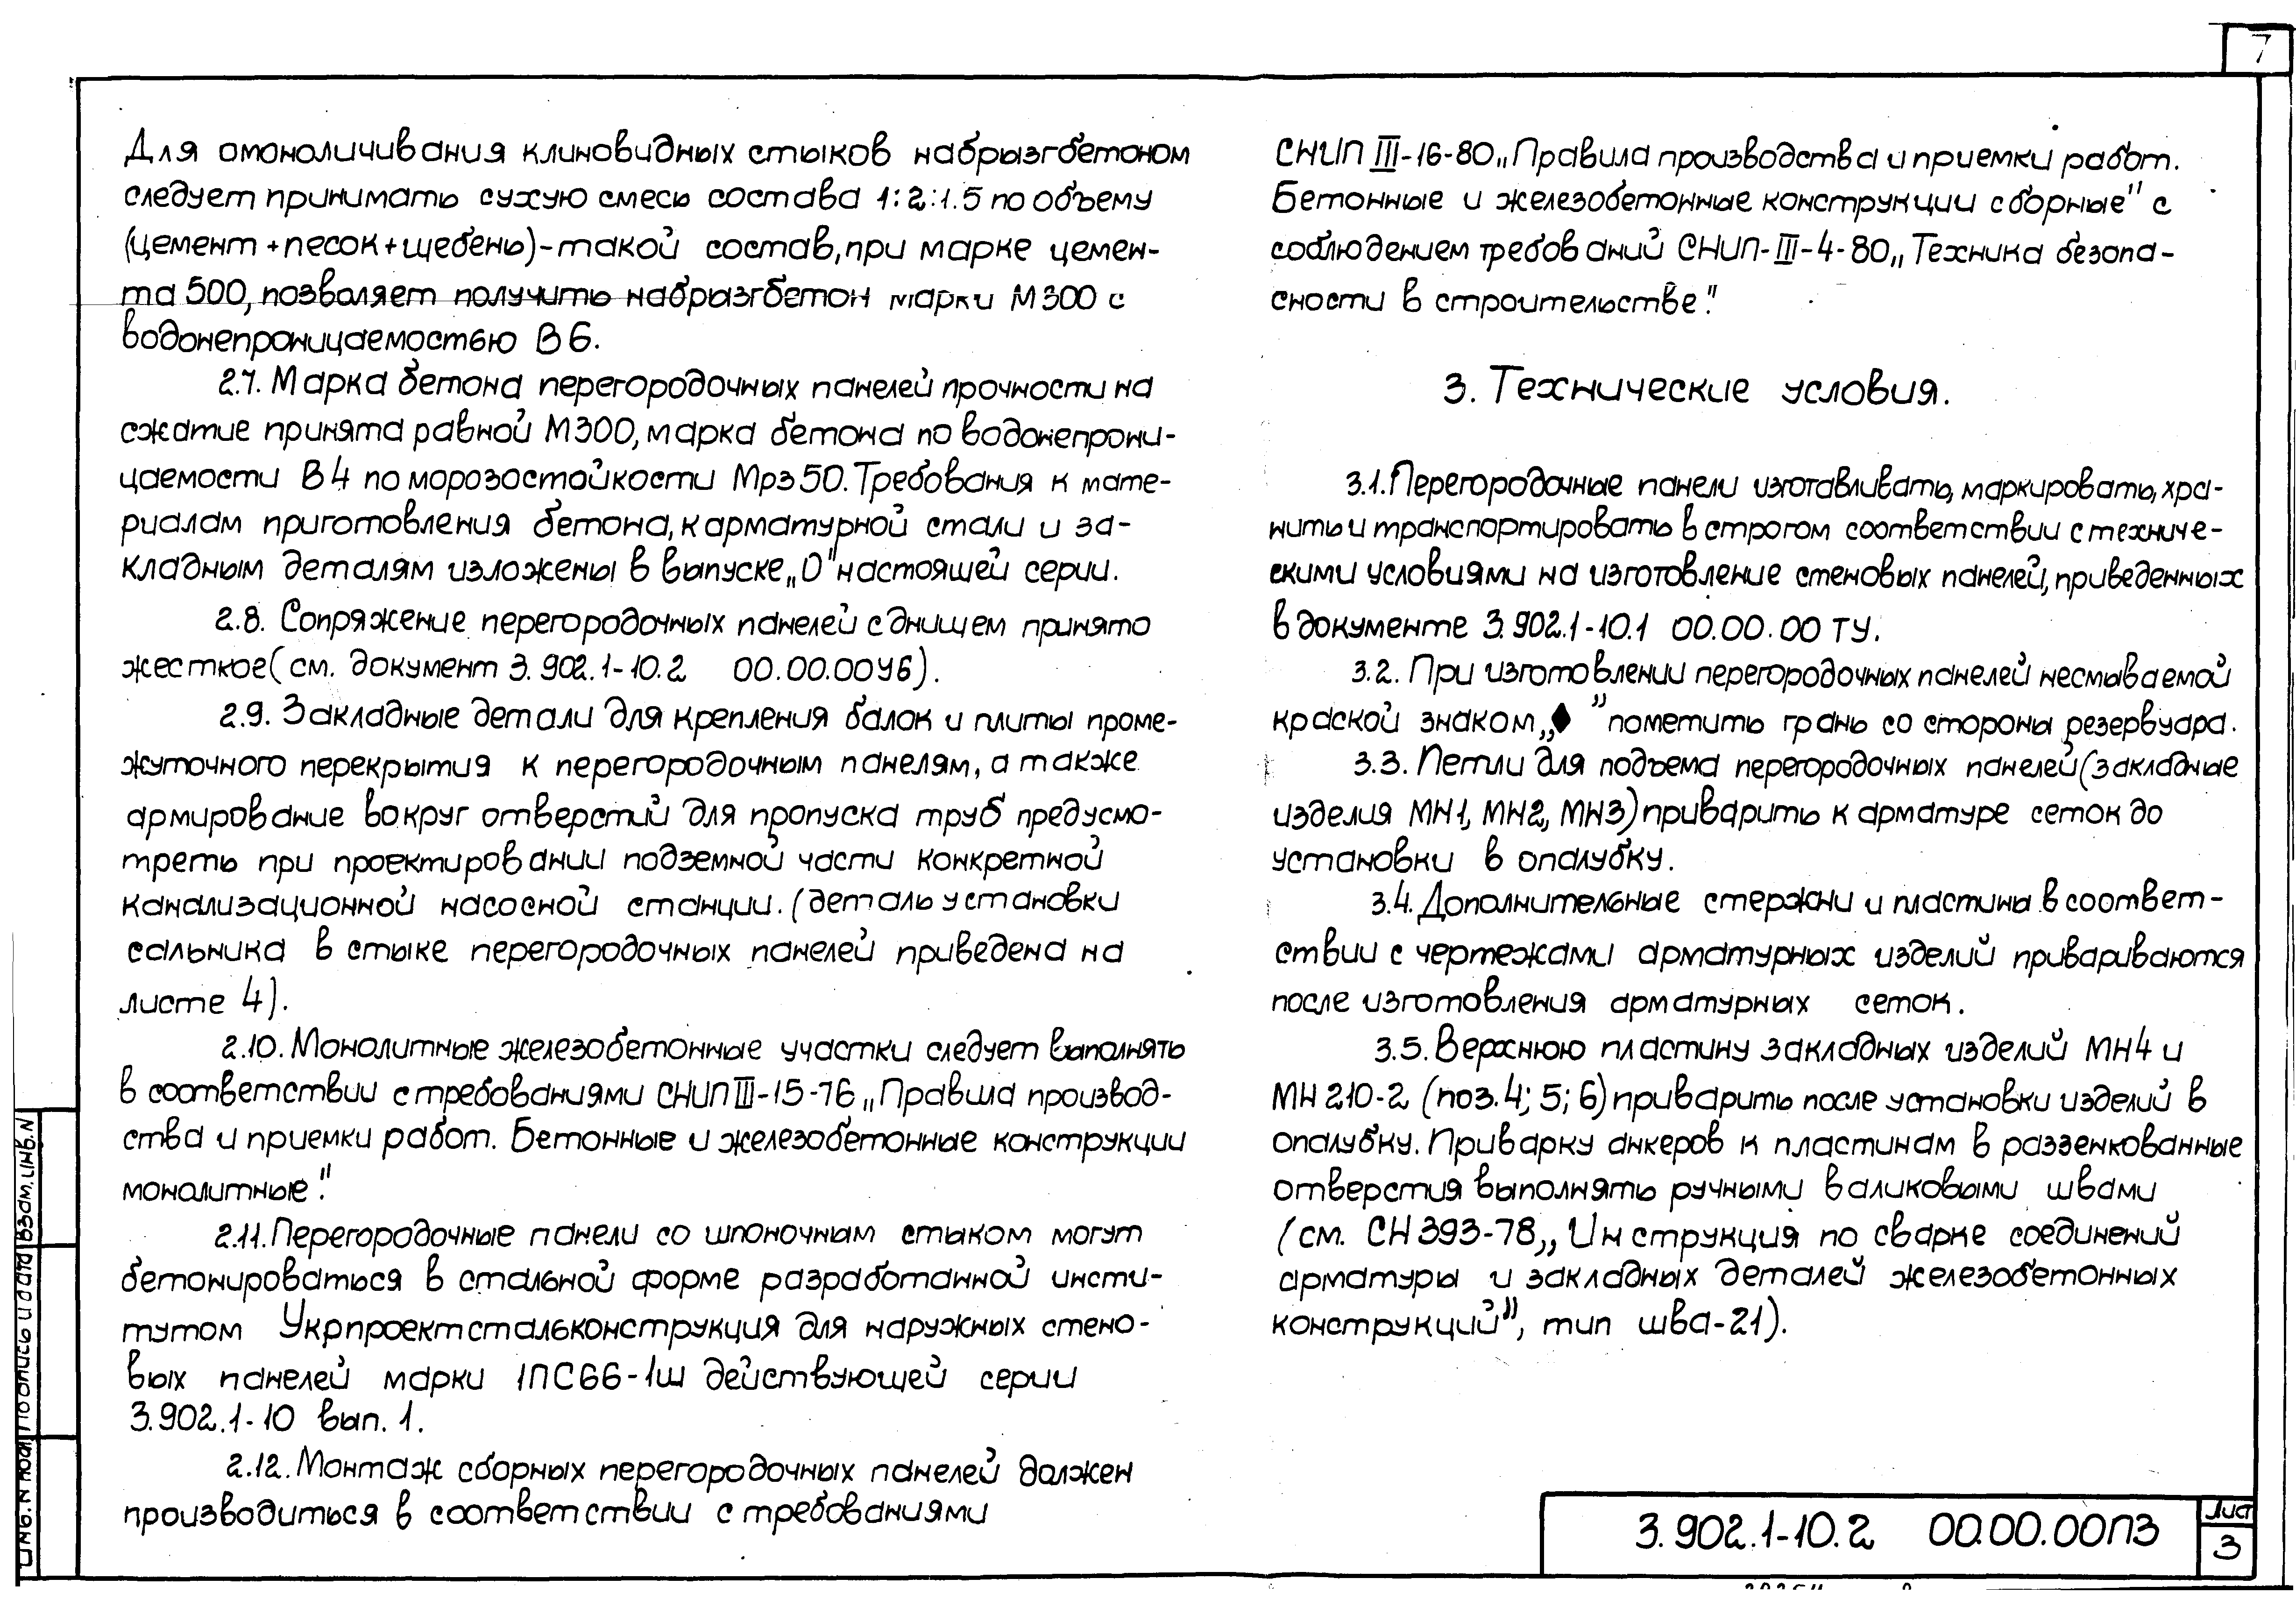 7
Для омоноличивания клиновидных стыков набрызгбетоном
следует принимать сухую смесь состава 1:2:1.5 по объему
(цемент+песок+щебень)-такой состав, при марке цемен-
та 500, позволяет получить набрызгбетон марки М300 с
водонепроницаемостью В6.
2.7. Марка бетона перегородочных панелей прочности на
сжатие принята равной М300, марка бетона по водонепрони-
цаемости В4 по морозостойкости Мрз50. Требования к мате-
риалам приготовления бетона, к арматурной стали и за-
кладным деталям изложены в выпуске „0" настоящей серии.
2.8. Сопряжение перегородочных панелей с днищем принято
жесткое (см. документ 3.902.1-10.2 00.00.00У6).
2.9. Закладные детали для крепления балок и плиты проме-
жуточного перекрытия к перегородочным панелям, а также
армирование вокруг отверстий для пропуска труб предусмо-
треть при проектировании подземной части конкретной
канализационной насосной станции. (деталь установки
сальника в стыке перегородочных панелей приведена на
листе 4).
2.10. Монолитные железобетонные участки следует выполнять
в соответствии с требованиями СНИП III-15-76 „Правила производ-
ства и приемки работ. Бетонные и железобетонные конструкции
монолитные".
2.11. Перегородочные панели со шпоночным стыком могут
бетонироваться в стальной форме разработанной инсти-
тутом Укрпроектстальконструкция для наружных стено-
вых панелей марки 1ПС66-1ш действующей серии
3.902.1-10 вып. 1.
2.12. Монтаж сборных перегородочных панелей должен
производиться в соответствии с требованиями
СНИП III-16-80 „Правила производства и приемки работ.
Бетонные и железобетонные конструкции сборные" с
соблюдением требований СНИП-III-4-80 „Техника безопа-
сности в строительстве".
3. Технические условия.
3.1. Перегородочные панели изготавливать, маркировать, хра-
нить и транспортировать в строгом соответствии с техниче-
скими условиями на изготовление стеновых панелей, приведенных
в документе 3.902.1-10.1 00.00.00 ТУ.
3.2. При изготовлении перегородочных панелей несмываемой
краской знаком „♦" пометить грань со стороны резервуара.
3.3. Петли для подъема перегородочных панелей (закладные
изделия МН1, МН2, МН3) приварить к арматуре сеток до
установки в опалубку.
3.4. Дополнительные стержни и пластины в соответ-
ствии с чертежами арматурных изделий привариваются
после изготовления арматурных сеток.
3.5. Верхнюю пластину закладных изделий МН4 и
МН210-2 (поз. 4; 5; 6) приварить после установки изделий в
опалубку. Приварку анкеров к пластинам в раззенкованные
отверстия выполнять ручными валиковыми швами
(см. СН 393-78 „Инструкция по сварке соединений
арматуры и закладных деталей железобетонных
конструкций", тип шва-21).
3.902.1-10.2 00.00.00ПЗ
Лист
3
Инв. N подл.
Подпись и дата
Взам. инв. N